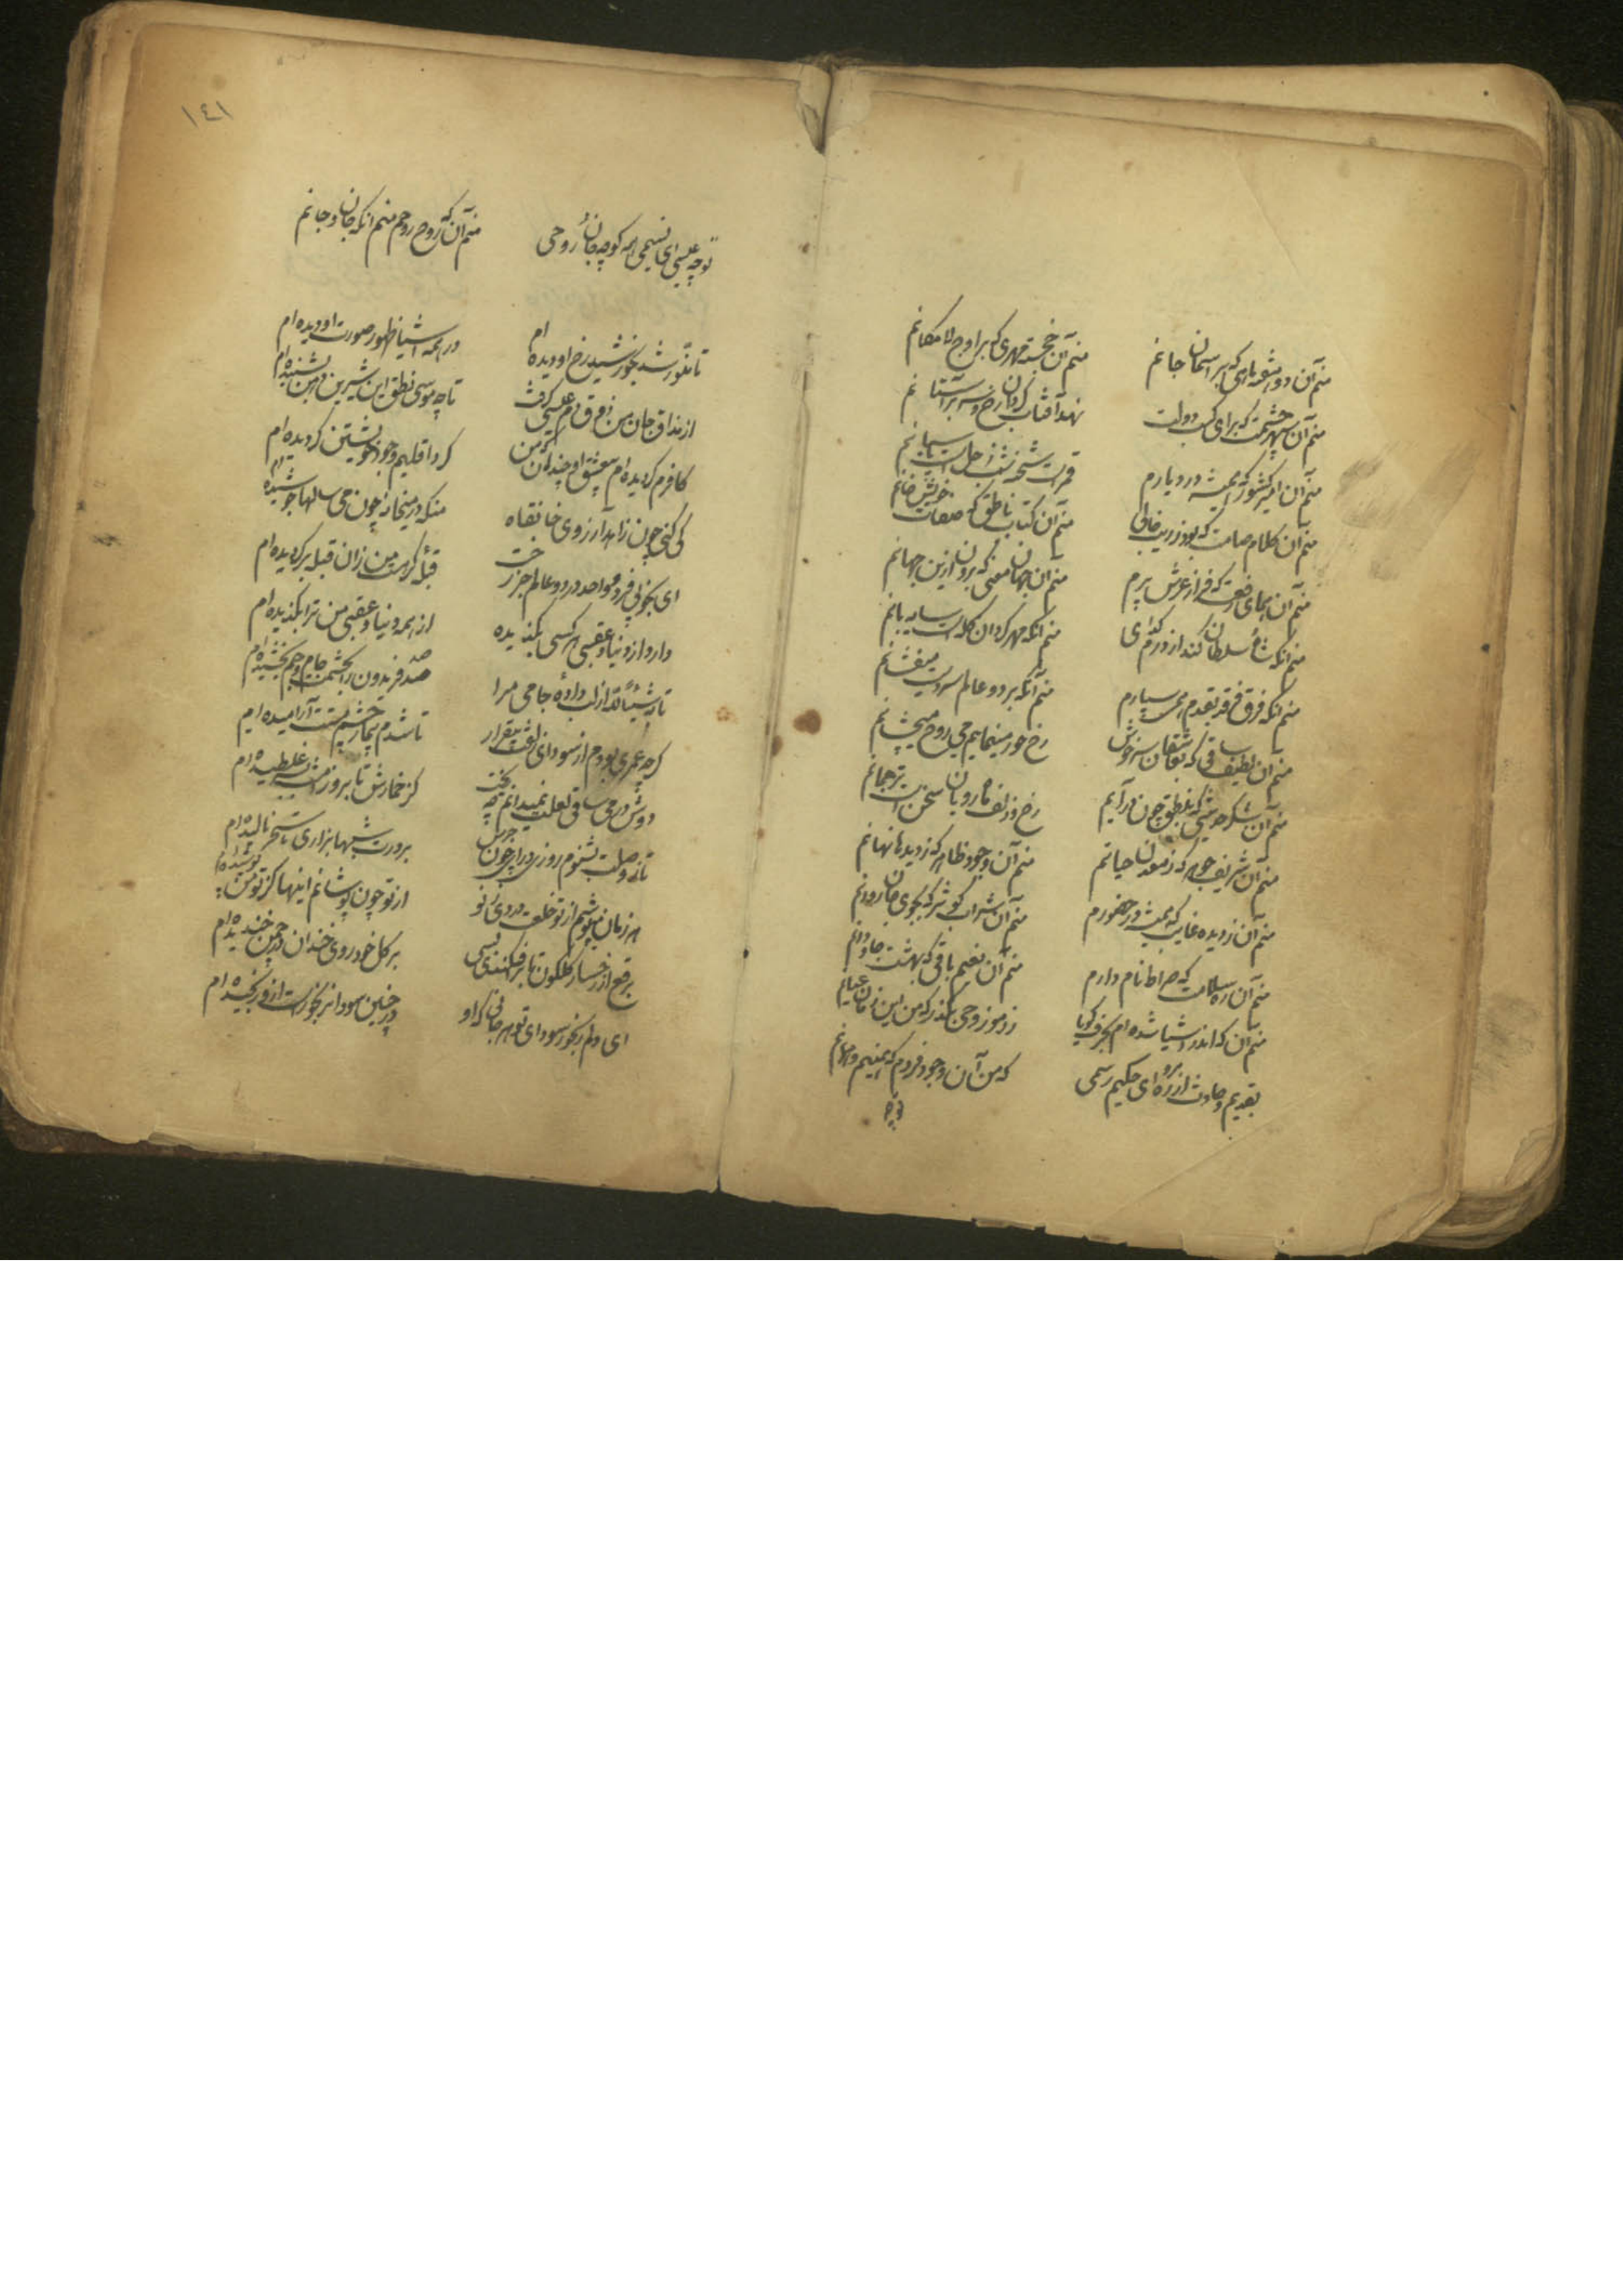 منم آن دو هفته ماهی که بر آسمان جانم
منم آن خجسته مهری که بر اوج لا مکانم
منم آن سپهر حشمت که برای کسب دولت
نهد آفتاب گردان رخ و سر بر آستانم
منم آن امیر کشور که همیشه در دیارم
قمرست شحنه شب زحل است پاسبانم
منم آن کلام صامت که بود ز ریب خالی
منم آن کتاب ناطق که صفات خویش خوانم
منم آن همای رفعت که فراز عرش پرم
منم آن جهان معنی که برون ازین جهانم
منم آنکه شاه و سلطان کند از درم گدائی
منم آنکه مهر گردان کله است سایه بانم
منم آنکه فرق فرقد بقدم همی سپارم
منم آنکه بر دو عالم سر دست میفشانم
منم آن لطیف ساقی که بعاشقان سرخوش
رخ حور مینمایم می روح میچشانم
منم آن شکر حدیثی که بنطق چون درآیم
رخ و زلف ماه رویان سخن است ترجمانم
منم آن شریف جوهر که ز معدن حیاتم
منم آن وجود ظاهر که ز دیدها نهانم
منم آن ز دیده غایب که همیشه در حضورم
منم آن شراب کوثر که بجوی جان روانم
منم آن ره سلامت که صراط نام دارم
منم آن نعیم باقی که بهشت جاودانم
منم آن که اندر اشیا شده ام بحرف گویا
ز رموز وحی بگذر که من این زمان عیانم
بقدیم و حادث از ره مرو ای حکیم رسمی
که من آن وجود فردم که همینم و همانم
توچه
۱٤۱
توچه عیسی ای نسیمی همه کوچه جان و روحی
منم آن که روح روحم منم آنکه جان جانم
تا منور شد بخورشید رخ او دیده ام
در همه اشیا ظهور صورت او دیده ام
از مذاق جان من ذوق دم عیسی گرفت
تا چو موسی نطق این شیرین دهن بشنیده ام
کافرم گردیده ام بعشق او چندان که من
گرد اقلیم وجود خویشتن گردیده ام
کی کنی چون زاهد آرزوی خانقاه
منکه در میخانه چون می سالها جوشیده ام
ای بخوبی فرد و واحد در دو عالم جز رخت
قبله گر هست من زان قبله برگردیده ام
دارد از دنیا و عقبی هر کسی بگزیده
از همه دنیا و عقبی من ترا بگزیده ام
تا ز شیئا لله از لب داده جامی مرا
صد فریدون را بحشمت جام جم بخشیده ام
گرچه عمری بودم از سودای زلفت بیقرار
تا شدم بیمار چشم مستت آرامیده ام
دوش در می ساقی لعلت نمیدانم چه ریخت
کز خمارش تا بروز مست غلطیده ام
تا ز وصلت بشنوم روزی درآیی چون جرس
بر درت شبها بزاری تا سحر نالیده ام
هر زمان میپوشم از تو خلعت وردی ز نو
از تو چون پوشانم اینها کز تو من پوشیده ام
برقع از رخسار گلگون تا برافکندی بسی
بر گل خودروی خندان در چمن خندیده ام
ای دلم رنجور سودای تو هر جانی که او
در چنین سودا نه رنجورست ازو رنجیده ام